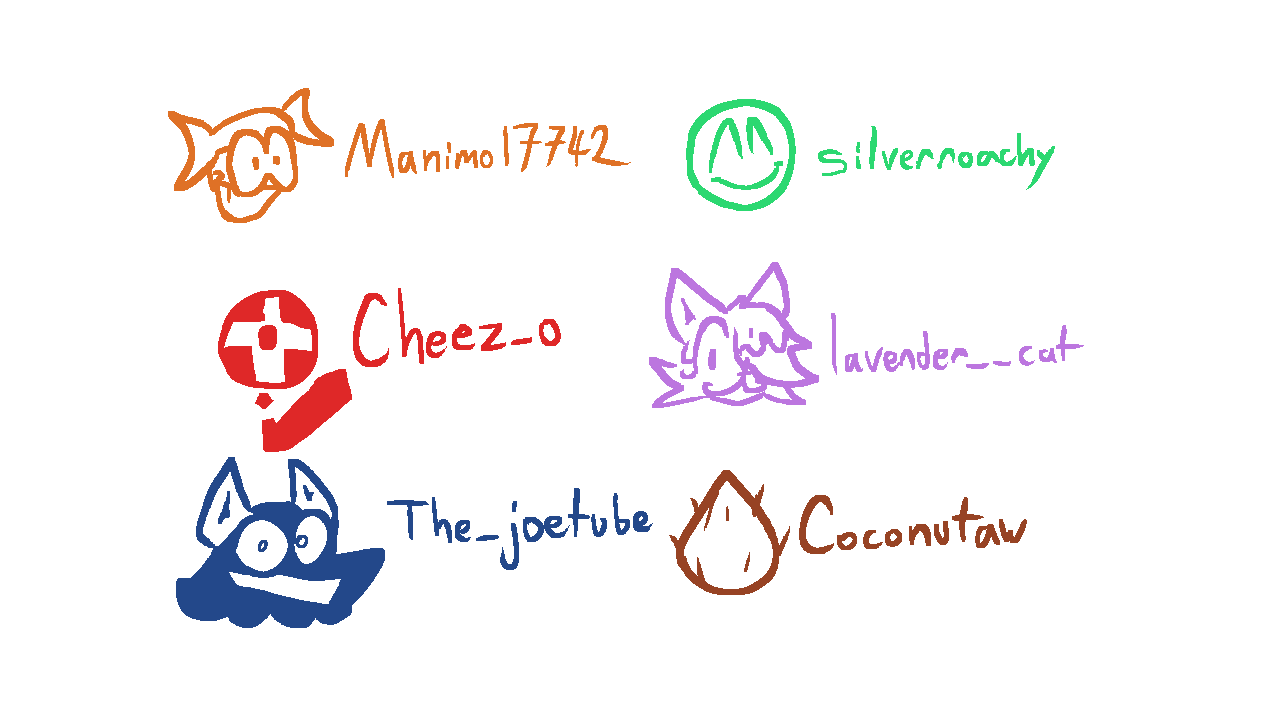 Manimo17742
silverroachy
Cheez_o
lavender__cat
The_joetube
Coconutaw